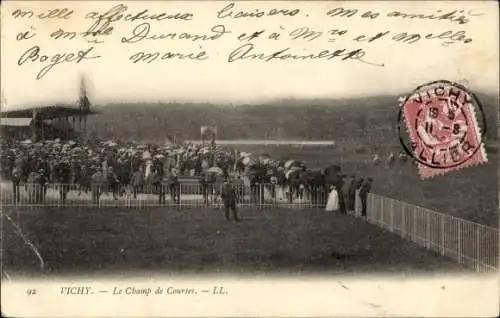 Mille affectueux baisers. mes amitiés
à Mme Durand et à Mrs et melles
Boget marie Antoinette
VICHY
ALLIER
92 VICHY. — Le Champ de Courses. — LL.